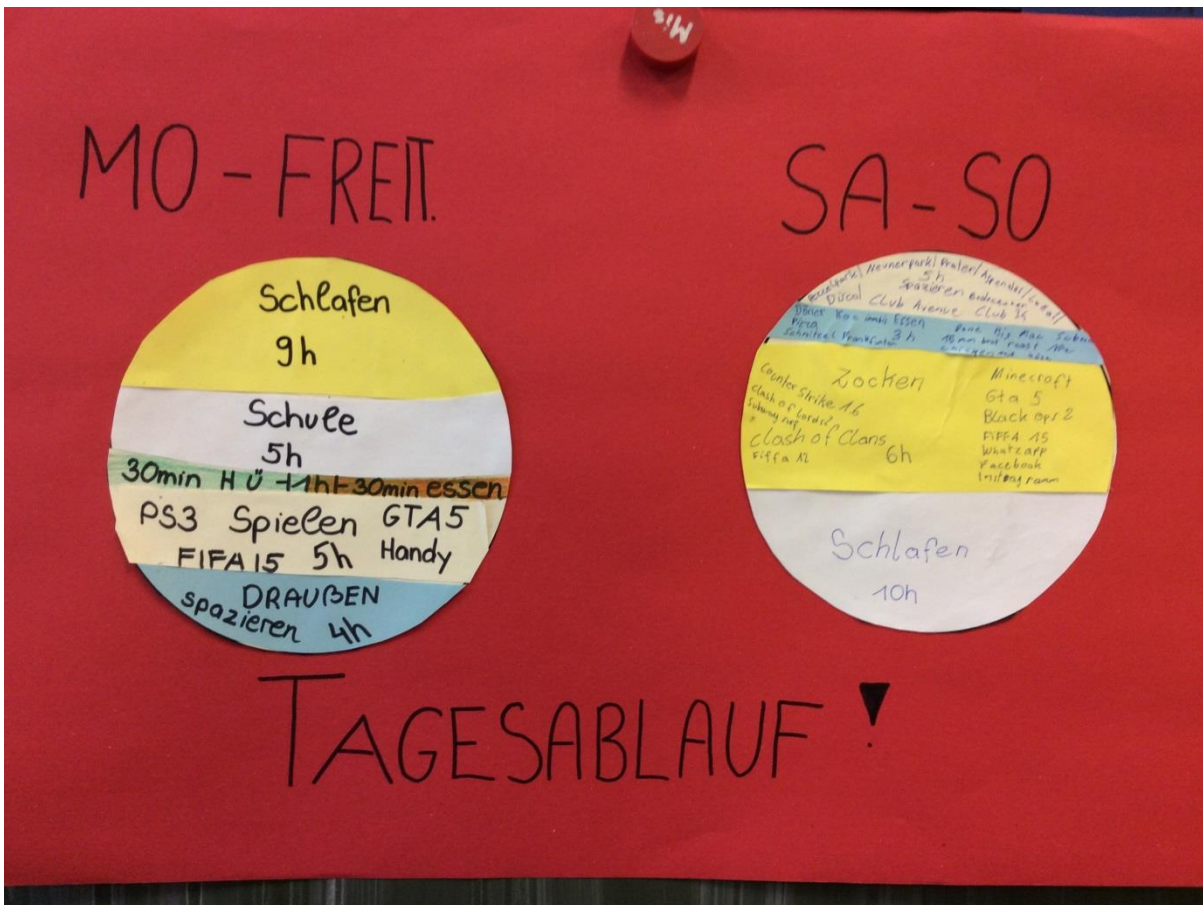 Mis
MO - FREIT.
Schlafen
9h
Schule
5h
30min HÜ -1h- 30min essen
PS3 Spielen GTA5
FIFA15 5h Handy
DRAUßEN
spazieren 4h
SA - SO
Prater
5h
Spazieren
Club Avenue Club
Essen
Pizza
Schnitzel Frankfurter 3h
Zocken
Counter Strike 16
Clash of Lords 2
Subway surf
Clash of Clans
Fiffa 12
6h
Minecraft
Gta 5
Black Ops 2
FiFFA 15
Whatzapp
Facebook
Instagramm
Schlafen
10h
TAGESABLAUF!